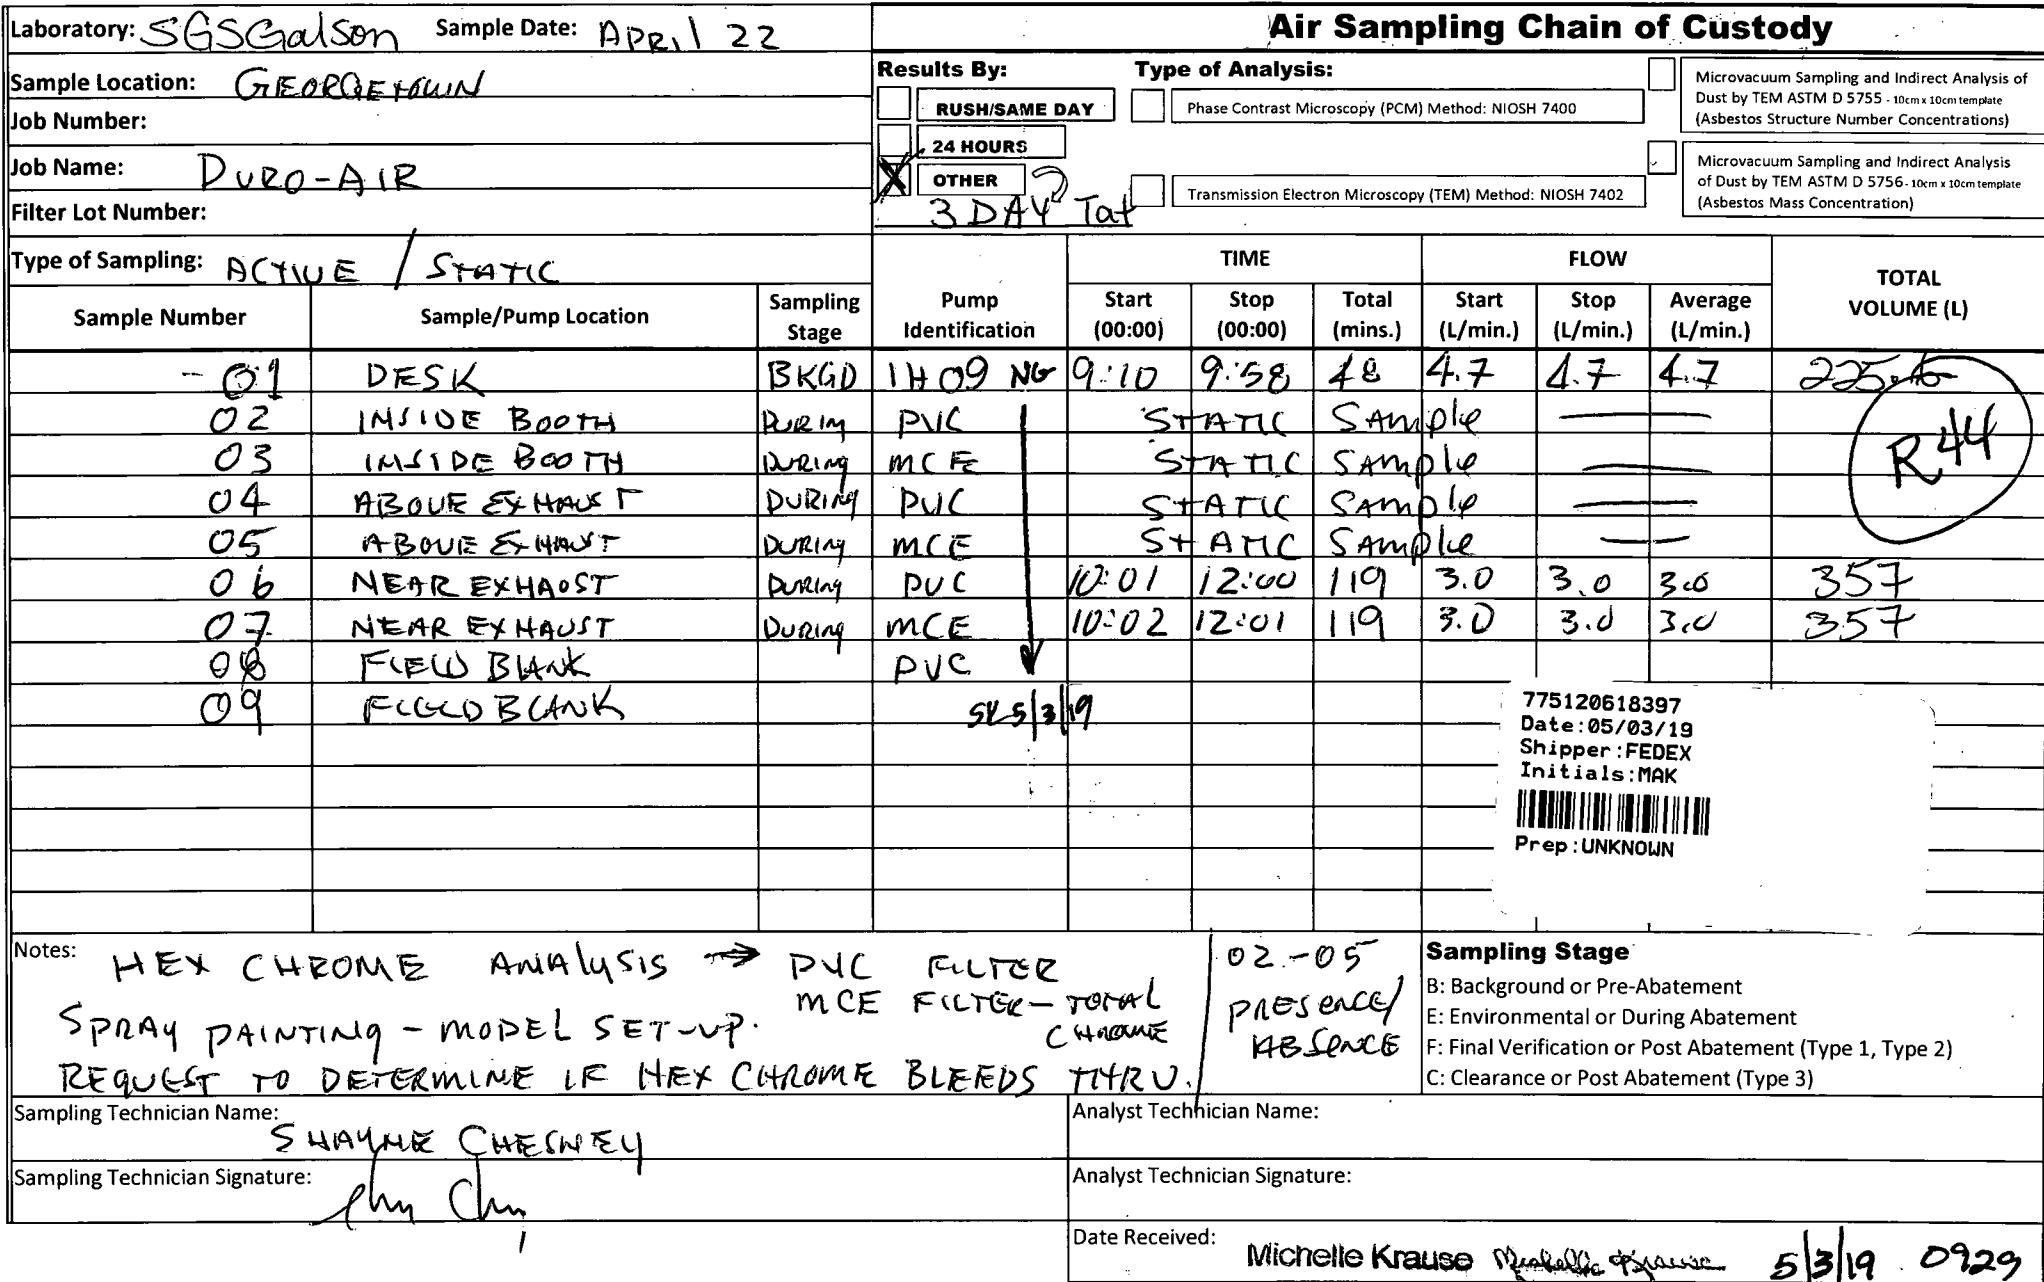 Laboratory: SGSGalson Sample Date: APRIL 22
Air Sampling Chain of Custody
Sample Location: GEORGETOWN
Job Number:
Job Name: DURO-AIR
Filter Lot Number:
Results By:
RUSH/SAME DAY
24 HOURS
X OTHER
3 DAY Tat
Type of Analysis:
Phase Contrast Microscopy (PCM) Method: NIOSH 7400
Transmission Electron Microscopy (TEM) Method: NIOSH 7402
Microvacuum Sampling and Indirect Analysis of
Dust by TEM ASTM D 5755 - 10cm x 10cm template
(Asbestos Structure Number Concentrations)
Microvacuum Sampling and Indirect Analysis
of Dust by TEM ASTM D 5756 - 10cm x 10cm template
(Asbestos Mass Concentration)
Type of Sampling: ACTIVE / STATIC
TIME FLOW TOTAL VOLUME (L)
Sample Number Sample/Pump Location Sampling Stage Pump Identification Start (00:00) Stop (00:00) Total (mins.) Start (L/min.) Stop (L/min.) Average (L/min.)
- 01 DESK BKGD 1H09 NG 9:10 9:58 48 4.7 4.7 4.7 225.6
02 INSIDE BOOTH DURIN PVC STATIC SAMPLE
03 INSIDE BOOTH DURING MCE STATIC SAMPLE
R44
04 ABOVE EXHAUST DURING PVC STATIC SAMPLE
05 ABOVE EXHAUST DURING MCE STATIC SAMPLE
06 NEAR EXHAUST DURING PVC 10:01 12:00 119 3.0 3.0 3.0 357
07 NEAR EXHAUST DURING MCE 10:02 12:01 119 3.0 3.0 3.0 357
08 FIELD BLANK PVC
09 FIELD BLANK 5/3/19
775120618397
Date:05/03/19
Shipper:FEDEX
Initials:MAK
Prep:UNKNOWN
Notes: HEX CHROME ANALYSIS → PVC FILTER
MCE FILTER - TOTAL CHROME
SPRAY PAINTING - MODEL SET-UP.
REQUEST TO DETERMINE IF HEX CHROME BLEEDS THRU.
02-05
PRESENCE/
ABSENCE
Sampling Stage
B: Background or Pre-Abatement
E: Environmental or During Abatement
F: Final Verification or Post Abatement (Type 1, Type 2)
C: Clearance or Post Abatement (Type 3)
Sampling Technician Name: SHAYNE CHESNEY
Analyst Technician Name:
Sampling Technician Signature:
Analyst Technician Signature:
Date Received: Michelle Krause Michelle Krause 5/3/19 0929